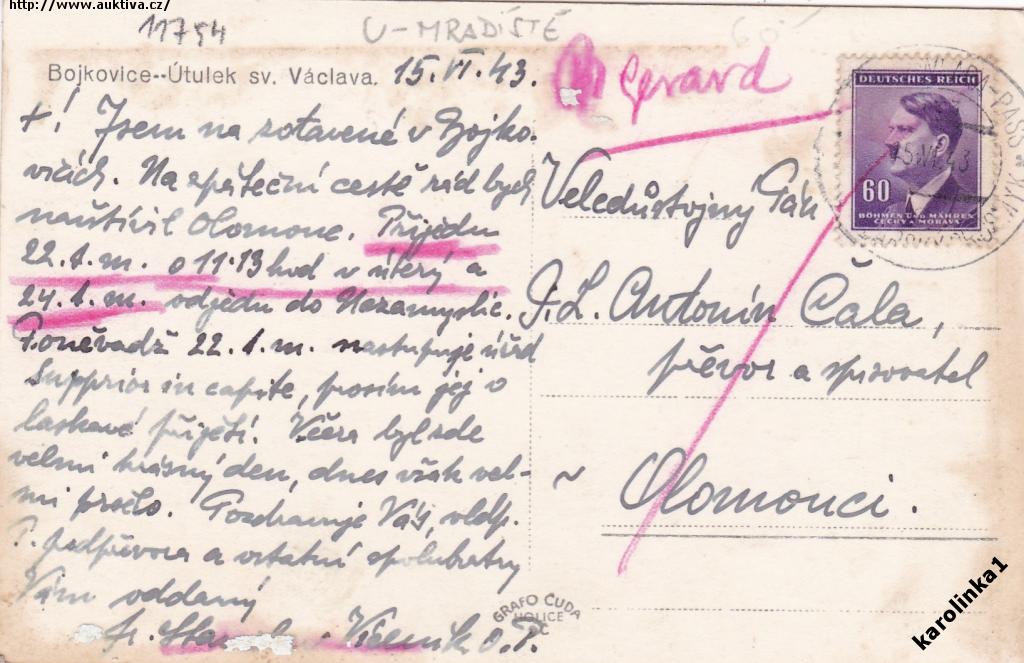 http://www.auktiva.cz/
11754
U-MRADIŠTĚ
60
Bojkovice--Útulek sv. Václava.
15.VI.43.
+! Jsem na zotavené v Bojko-
vicích. Na zpáteční cestě rád bych
navštívil Olomouc. Přijedu
22.t.m. o 11.13 hod v úterý a
24.t.m. odjedu do Nezamyslic.
Poněvadž 22.t.m. nastupuje úřad
Supprior in capite, prosím jej o
laskavé přijetí. Včera byl zde
velmi krásný den, dnes však vel-
mi pršelo. Pozdravuje Vás, vldp.
P. podpřevora a ostatní spolubratry
Vám oddaný
fr. O.P.
Gerard
Veledůstojný Pán
P.L. Antonín Čala,
převor a spisovatel
v
Olomouci.
DEUTSCHES REICH
60
BÖHMEN UND MÄHREN
ČECHY A MORAVA
15.VI.43
GRAFO ČUDA
HOLICE
karolinka1